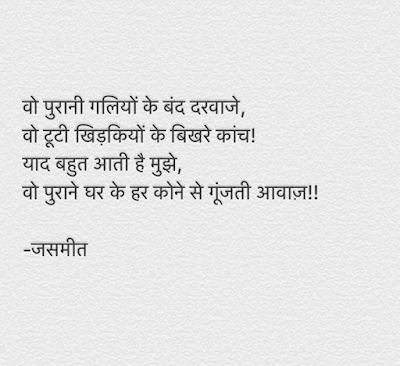 वो पुरानी गलियों के बंद दरवाजे,
वो टूटी खिड़कियों के बिखरे कांच!
याद बहुत आती है मुझे,
वो पुराने घर के हर कोने से गूंजती आवाज़!!
-जसमीत